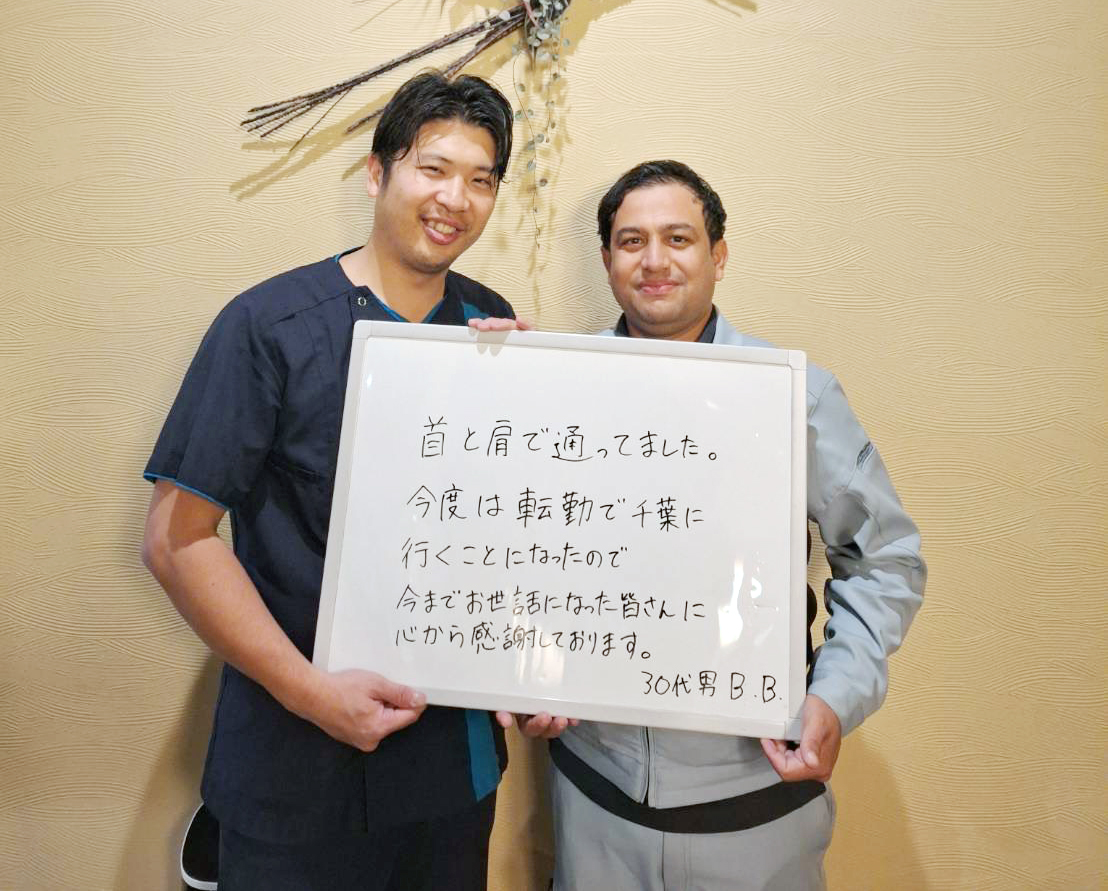 首と肩で通ってました。
今度は転勤で千葉に
行くことになったので
今までお世話になった皆さんに
心から感謝しております。
30代男 B.B.